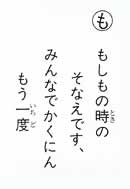 も
もしもの時の
そなえです、
みんなでかくにん
もう一度